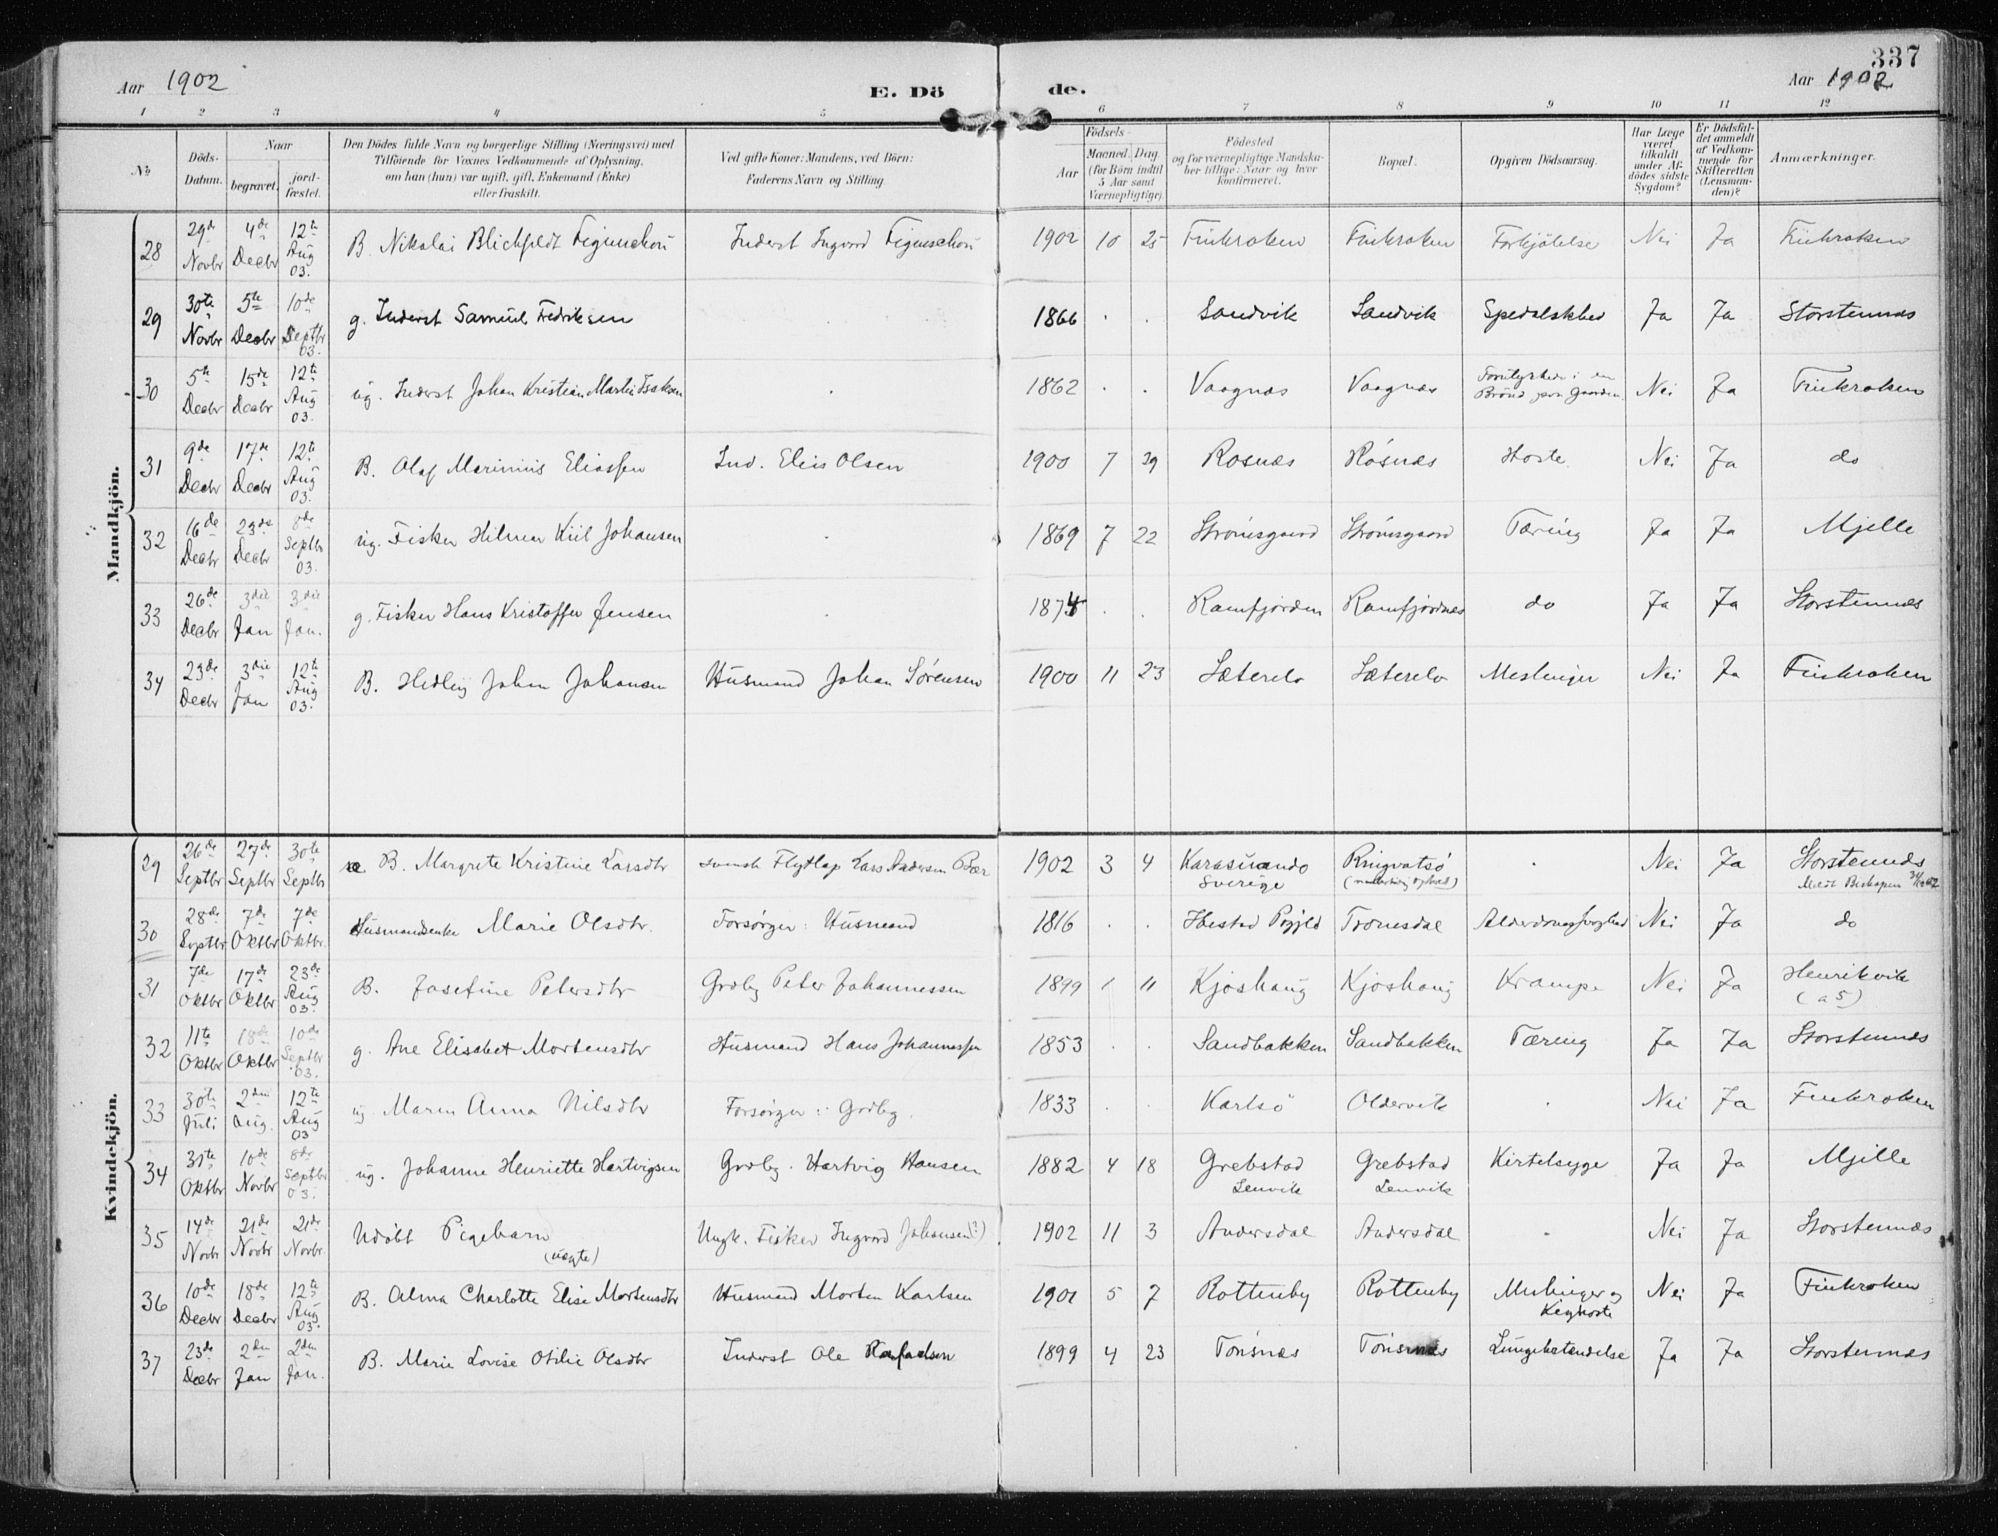 337
Aar 1902 E. Dö de. Aar 1902
1 2 3 4 5 6 7 8 9 10 11 12
No. Döds-Datum. Naar begravet. jordfæstet. Den Dödes fulde Navn og borgerlige Stilling (Næringsvei) med Tilföiende for Voxnes Vedkommende af Oplysning, om han (hun) var ugift, gift, Enkemand (Enke) eller fraskilt. Ved gifte Koner: Mandens, ved Börn: Faderens Navn og Stilling. Födsels- Aar Maaned. Dag. (for Börn indtil 5 Aar samt Værnepligtige). Födested og for værnepligtige Mandskaber tillige: Naar og hvor konfirmeret. Bopæl. Opgiven Dödsaarsag. Har Læge været tilkaldt under Afdödes sidste Sygdom? Er Dödsfaldet anmeldt af Vedkommende for Skifteretten (Lensmanden)? Anmærkninger.
Mandkjön.
28 29de Novbr 4de Decbr 12te Aug 03. B. Nikolai Blichfeldt Figenschou Inderst Ingvard Figenschou 1902 10 25 Finkroken Finkroken Forkjölelse Nei Ja Finkroken
29 30te Novbr 5te Decbr 10de Septbr 03. g. Inderst Samuel Fredriksen 1866 . . Sandvik Sandvik Spedalskhed Ja Ja Storstennæs
30 5te Decbr 15de Decbr 12te Aug 03. ug. Inderst Johan Kristian Martin Isaksen . 1862 . . Vaagnæs Vaagnæs i en Brönd paa Gaarden. Nei Ja Finkroken
31 9de Decbr 17de Decbr 12te Aug 03. B. Olaf Marinius Eliassen Ind. Elias Olsen 1900 7 29 Rosnæs Rösnæs Hoste Nei Ja do
32 16de Decbr 23de Decbr 8de Septbr 03. ug. Fisker Hilmar Kiil Johansen . 1869 7 22 Strömsgaard Strömsgaard Tæring Ja Ja Mjelle
33 26de Decbr 3die Jan 3die Jan. g. Fisker Hans Kristoffer Jensen . 1874 . . Ramfjorden Ramfjordnes do Ja Ja Storstennæs
34 23de Decbr 3die Jan 12te Aug 03. B. Hedley Johan Johansen Husmand Johan Sörensen 1900 11 23 Sæterelv Sæterelv Meslinger Nei Ja Finkroken
Kvindekjön.
29 26de Septbr 27de Septbr 30te Septbr B. Margrete Kristine Larsdtr svensk Flytlap Lars Andersen Bær 1902 3 4 Karasuando Sverige Ringvatsö . Nei Ja Storstennæs
30 28de Septbr 7de Oktbr 7de Oktbr. Husmandsenke Marie Olsdtr. Forsörger: Husmand 1816 Ibestad Tromsdal Alderdomssvaghed Nei Ja do
31 7de Oktbr 17de Oktbr 23de Aug 03. B. Josefine Petersdtr Grdbg Peter Johannessen 1899 1 11 Kjoshaug Kjoshaug Krampe Nei Ja Henrikvik (a 5)
32 11te Oktbr 18de Oktbr 10de Septbr 03. g. Ane Elisabet Mortensdtr Husmand Hans Johannessen 1853 . . Sandbakken Sandbakken Tæring Ja Ja Storstennæs
33 30te Juli 2den Aug. 12te Aug 03 ug Maren Anna Nilsdtr Forsörger: Grdbg. 1833 . . Karlsö Oldervik . Nei Ja Finkroken
34 31te Oktbr 10de Novbr 8de Septbr 03. ug. Johanne Henriette Hartvigsen Grdbg. Hartvig Hansen 1882 4 18 Grebstad Lenvik Grebstad Lenvik Kirtelsyge Ja Ja Mjelle
35 14de Novbr 21de Novbr 21de Novbr. Udöbt Pigebarn (uægte) Ungk. Fisker Ingvard Johansen(?) 1902 11 3 Andersdal Andersdal . Nei Ja Storstennæs
36 10de Decbr 18de Decbr 12te Aug 03. B. Alma Charlotte Elise Mortensdtr Husmand Morten Karlsen 1901 5 7 Rottenby Rottenby Meslinger og Kighoste Nei Ja Finkroken
37 23de Decbr 2den Jan 2den Jan. B. Marie Lovise Otilie Olsdtr Inderst Ole Rafaelsen 1899 4 23 Tönsnæs Tönsnæs Lungebetændelse Ja Ja Storstennæs